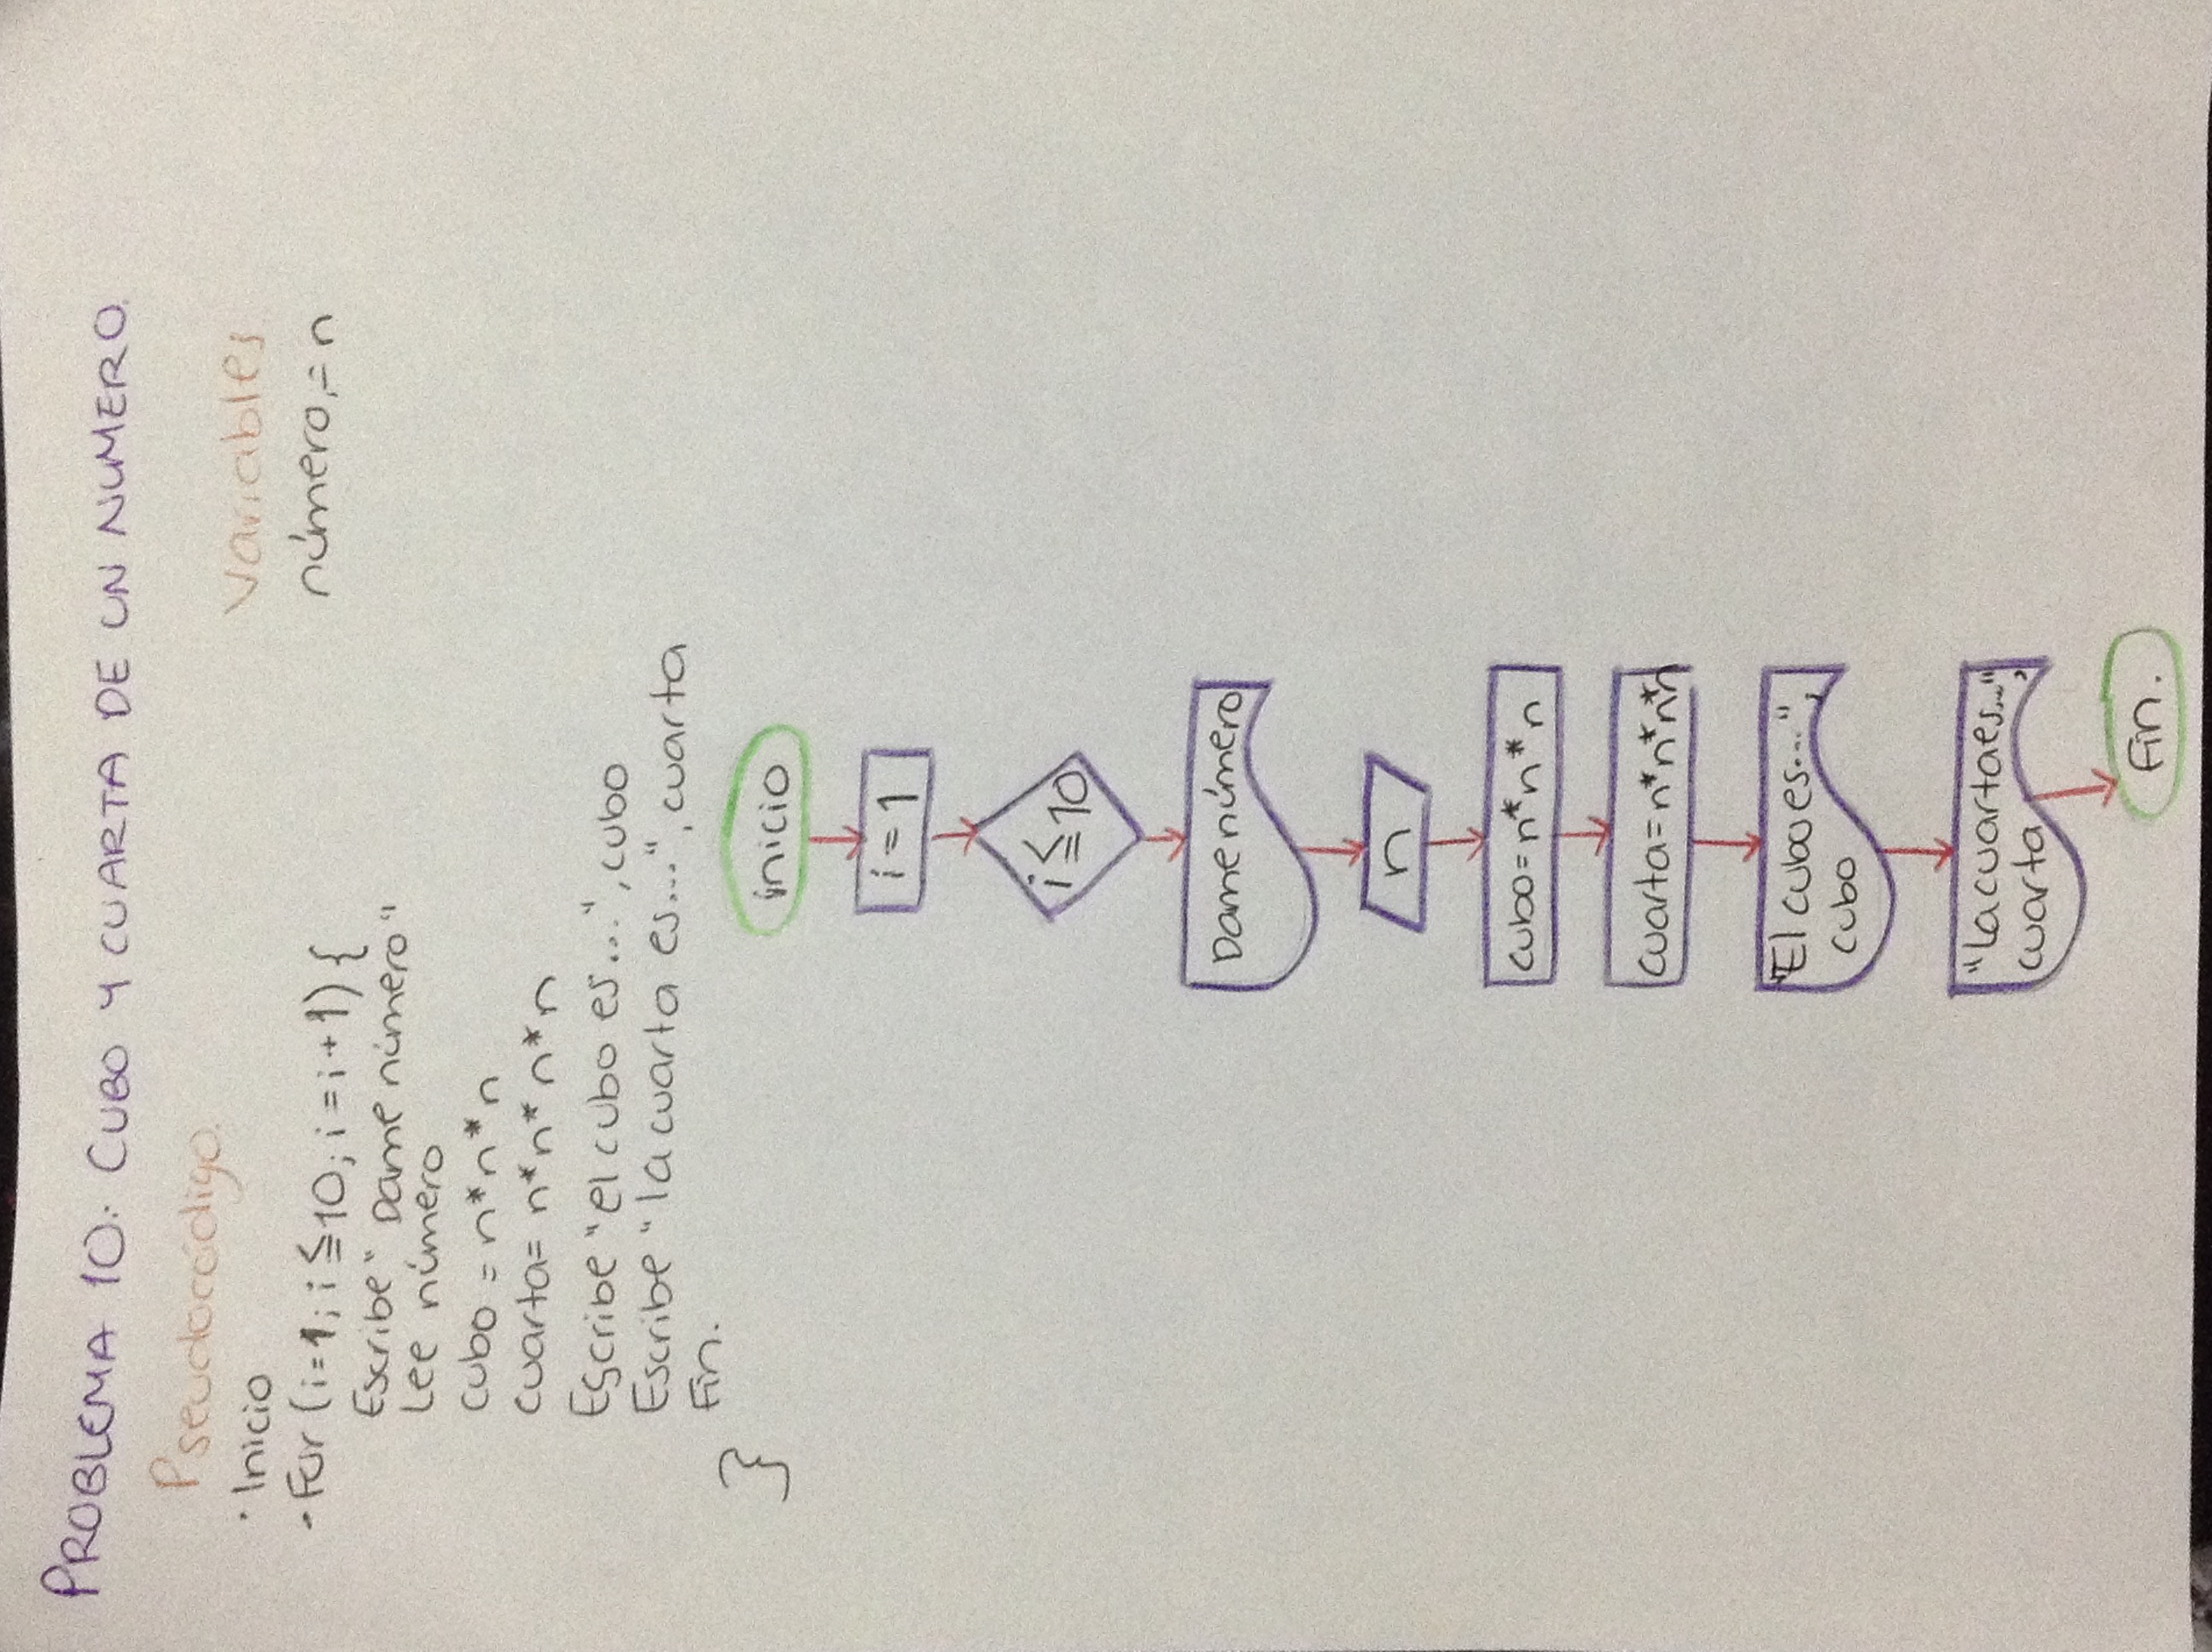 PROBLEMA 10: CUBO Y CUARTA DE UN NUMERO.
Pseudocódigo.
· Inicio
- For (i=1; i≦10; i=i+1) {
Escribe "Dame número"
Lee número
cubo = n*n*n
cuarta= n*n*n*n
Escribe "el cubo es...", cubo
Escribe "la cuarta es...", cuarta
Fin.
}
Variables
número,= n
inicio
i = 1
i≦10
Dame número
n
cubo=n*n*n
cuarta=n*n*n*n
"El cubo es...",
cubo
"La cuarta es...",
cuarta
Fin.